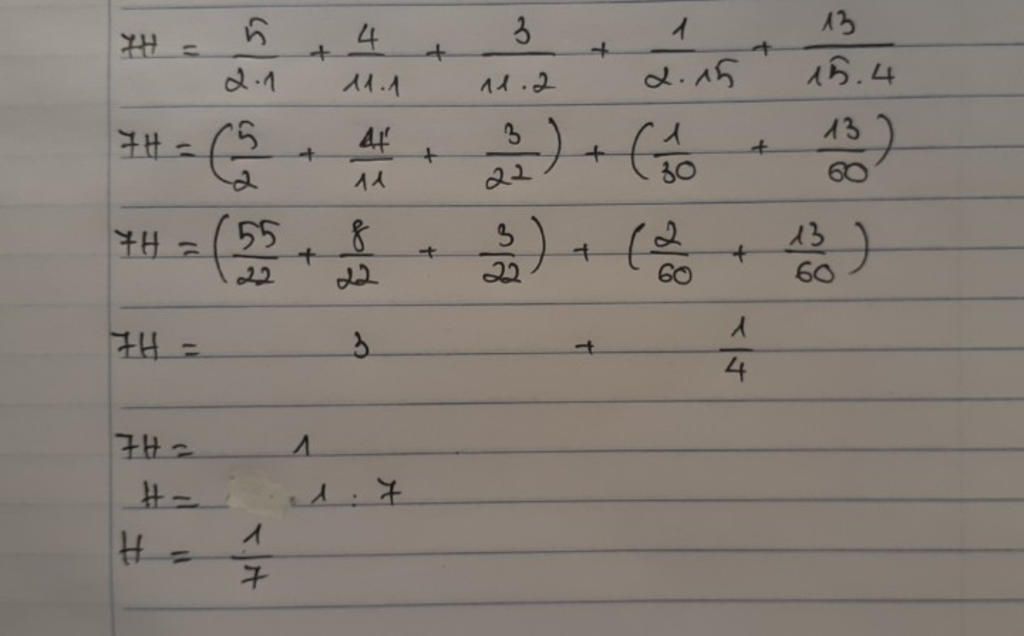 7H = 5/2.1 + 4/11.1 + 3/11.2 + 1/2.15 + 13/15.4
7H = (5/2 + 4/11 + 3/22) + (1/30 + 13/60)
7H = (55/22 + 8/22 + 3/22) + (2/60 + 13/60)
7H = 3 + 1/4
7H = 1
H = . 1 : 7
H = 1/7